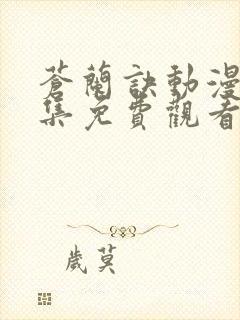 蒼蘭訣動漫
集免費觀看
歲莫